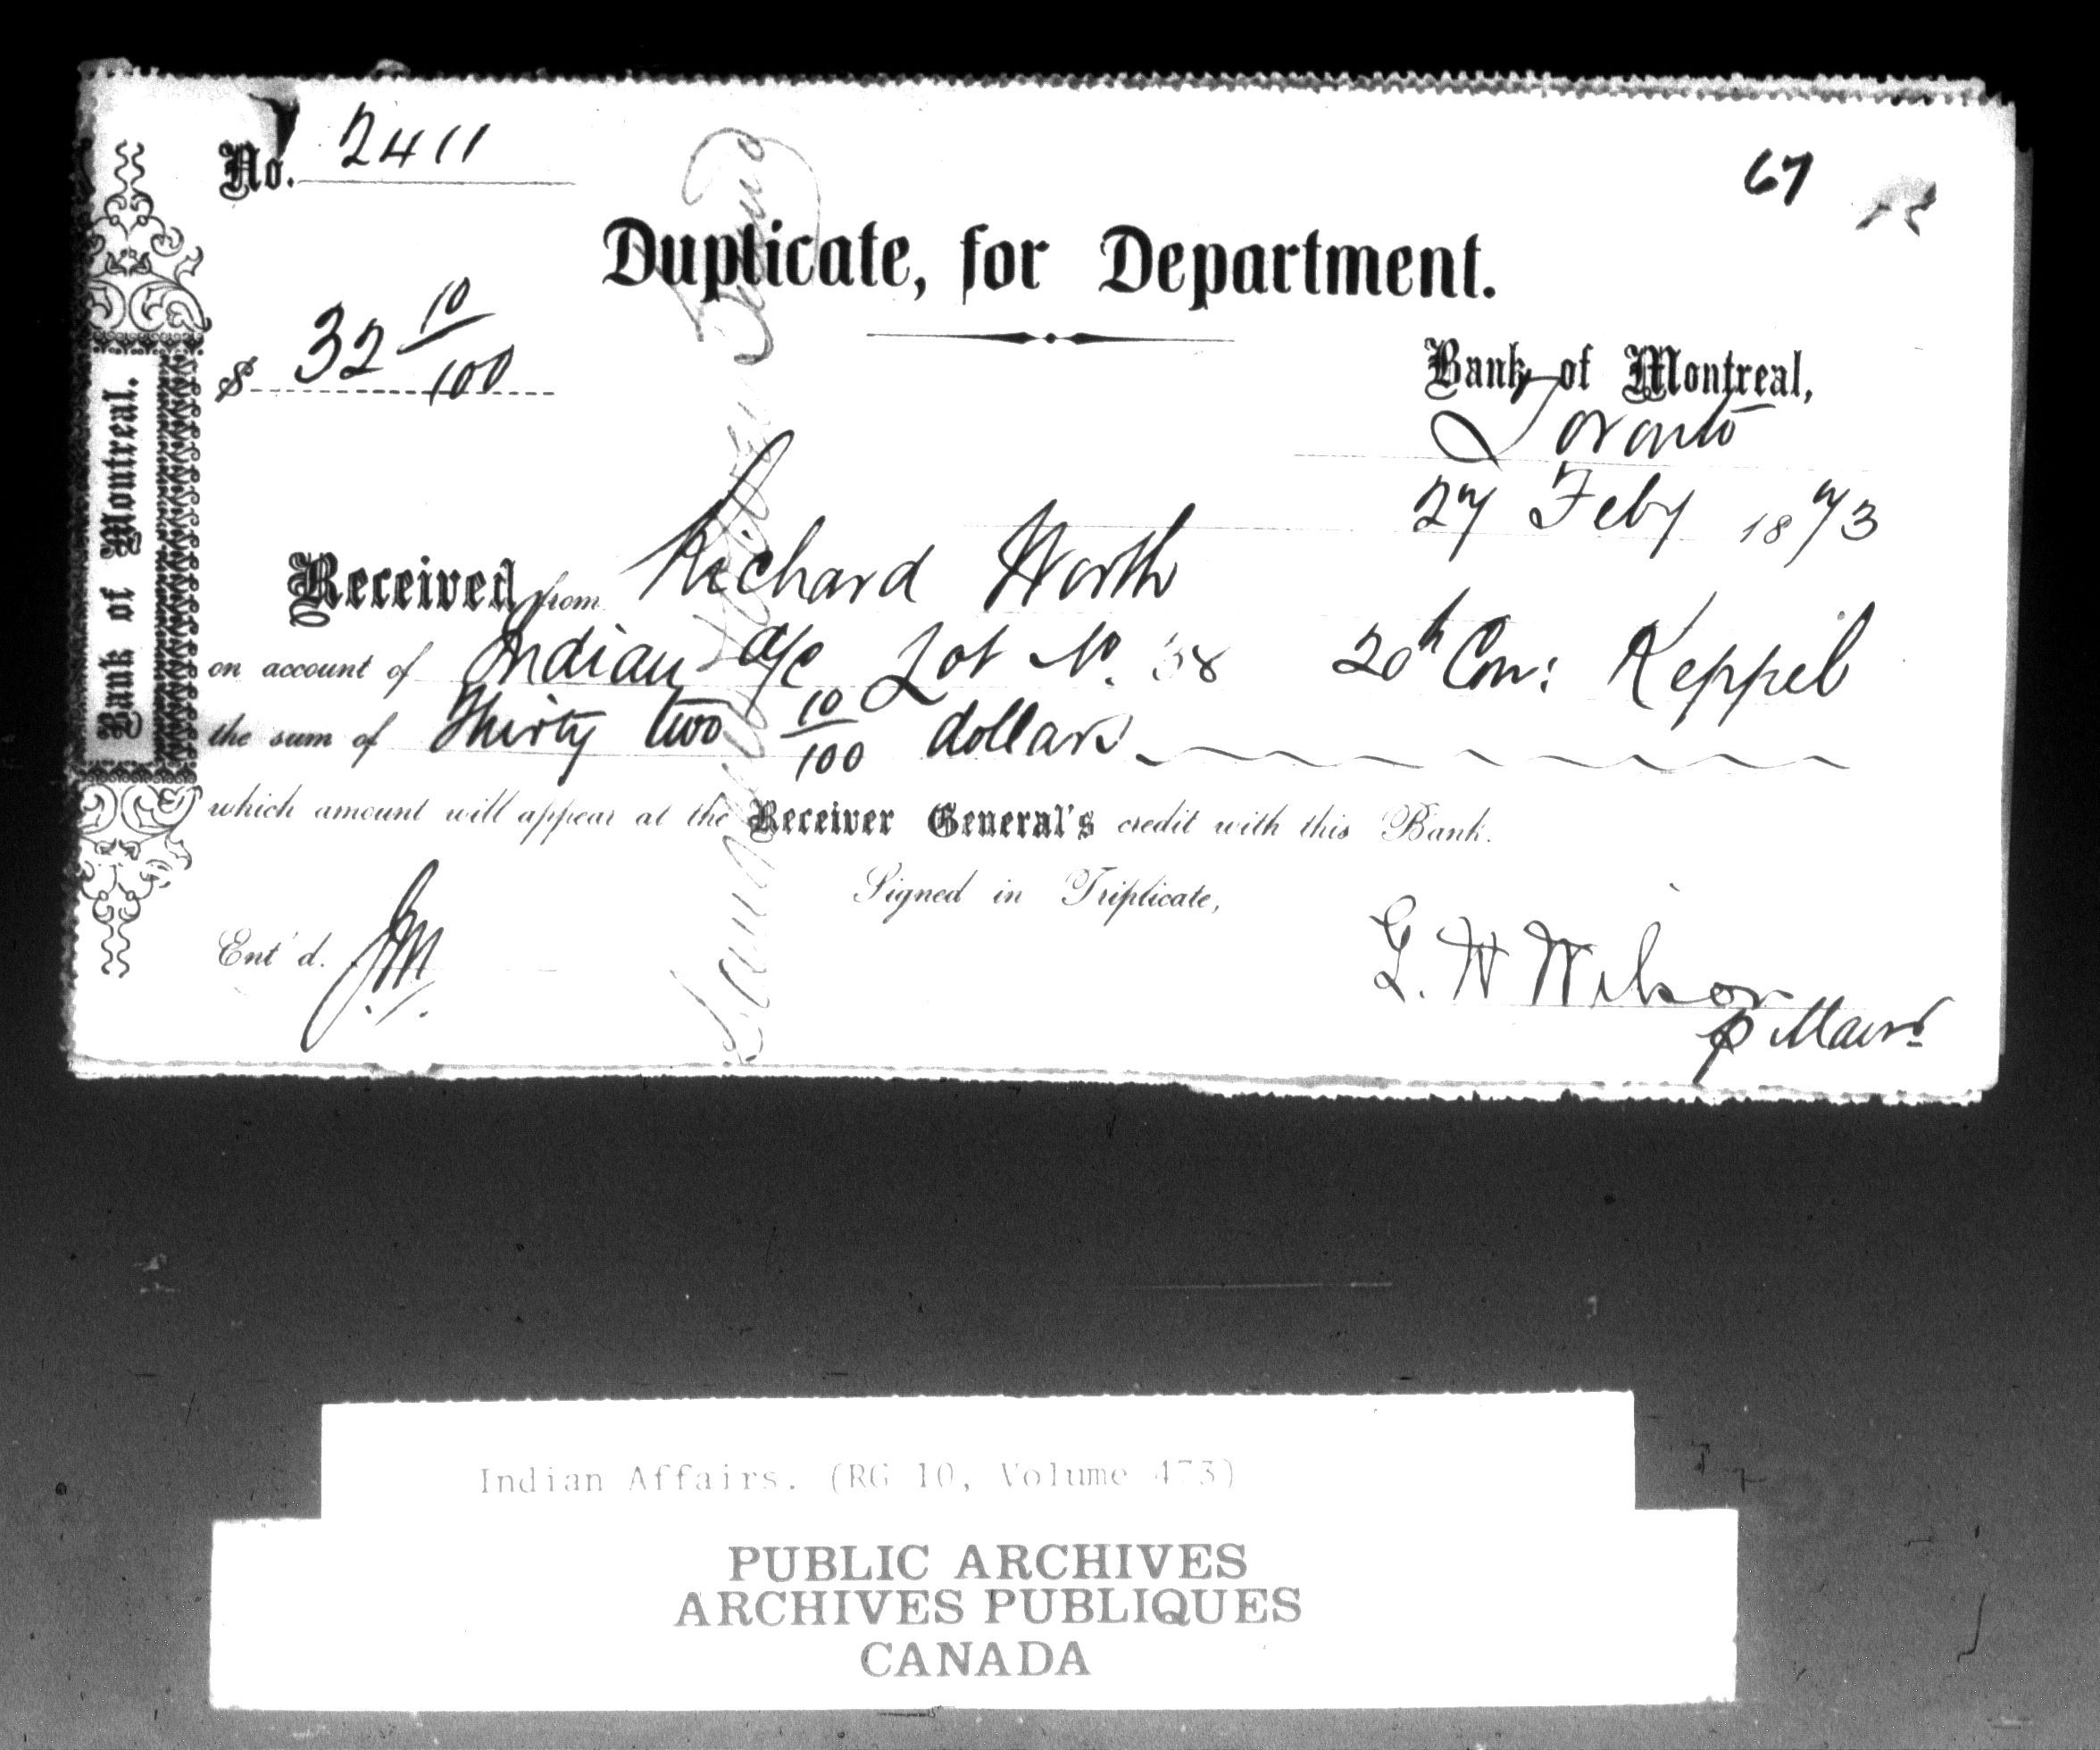 No. 2411
67
Duplicate, for Department.
$ 32 10/100
Bank of Montreal,
Toronto
27 Feby 1873
Received from Richard Worth
on account of Indian a/c Lot No. 38 20th Con: Keppel
the sum of Thirty two 10/100 dollars
which amount will appear at the Receiver General's credit with this Bank.
Signed in Triplicate,
Ent'd. J.M.
G. H Wilson
p Man
Bank of Montreal.
Indian Affairs. (RG 10, Volume 473)
PUBLIC ARCHIVES
ARCHIVES PUBLIQUES
CANADA